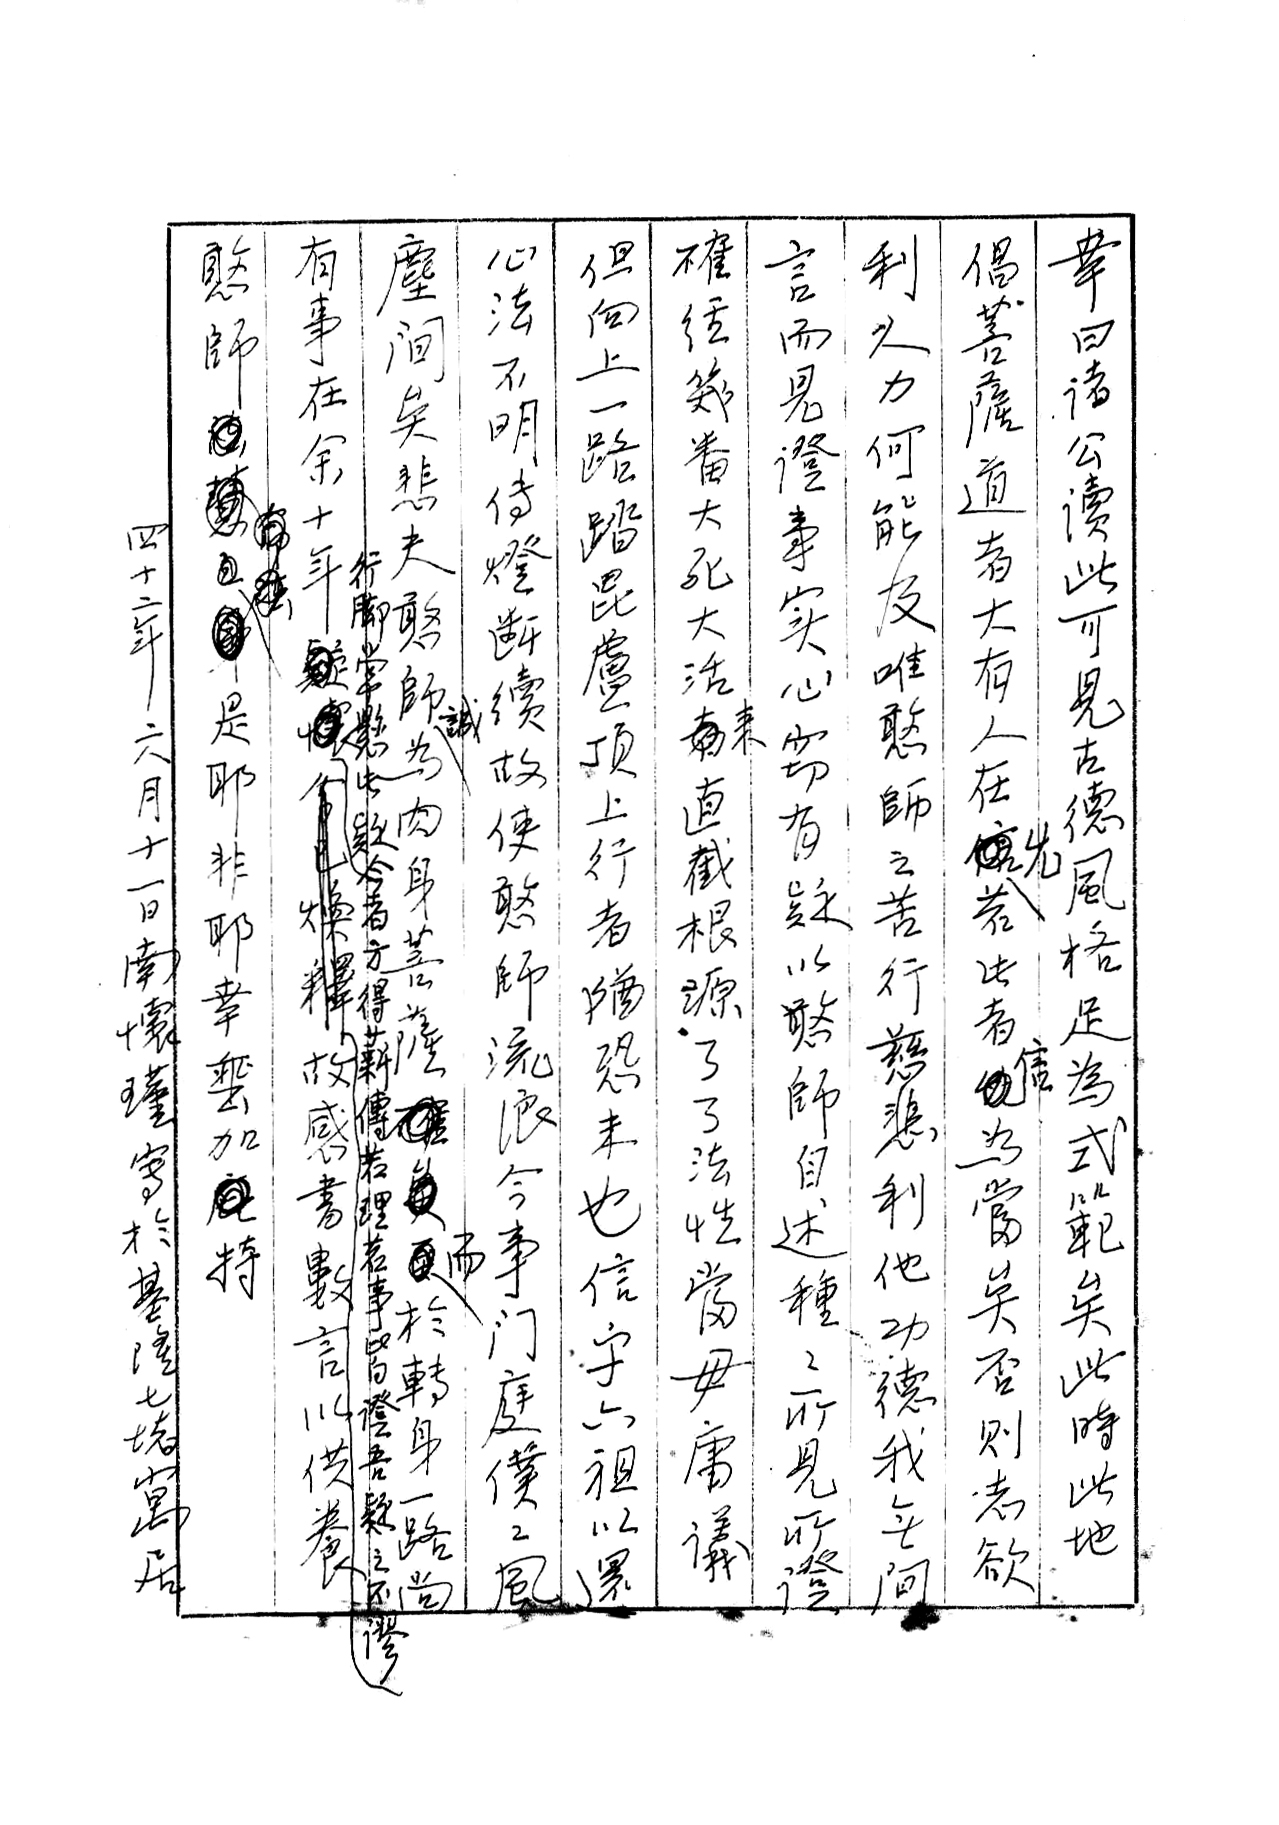 幸曰诸公讀此可見古德風格足為式範矣此時此地
倡菩薩道者大有人在先若此者信為當矣否則志欲
利人力何能及唯憨師之苦行慈悲利他功德我无间
言而見證事实心窃有疑以憨師自述種〻所見所證
確经幾番大死大活来直截根源了了法性當毋庸議
但向上一路踏毘盧顶上行者猶恐未也信乎六祖以还
心法不明傳燈斷續故使憨師流浪今事门庭僕〻風
塵间矣悲夫憨師誠為肉身菩薩而於轉身一路尚
有事在余十年行脚常懸此疑今者方得薪傳若理若事皆證吾疑之不謬
故感書數言以供養
憨師是耶非耶幸垂加持
四十二年六月十一日南懷瑾寫於基隆七堵寓居